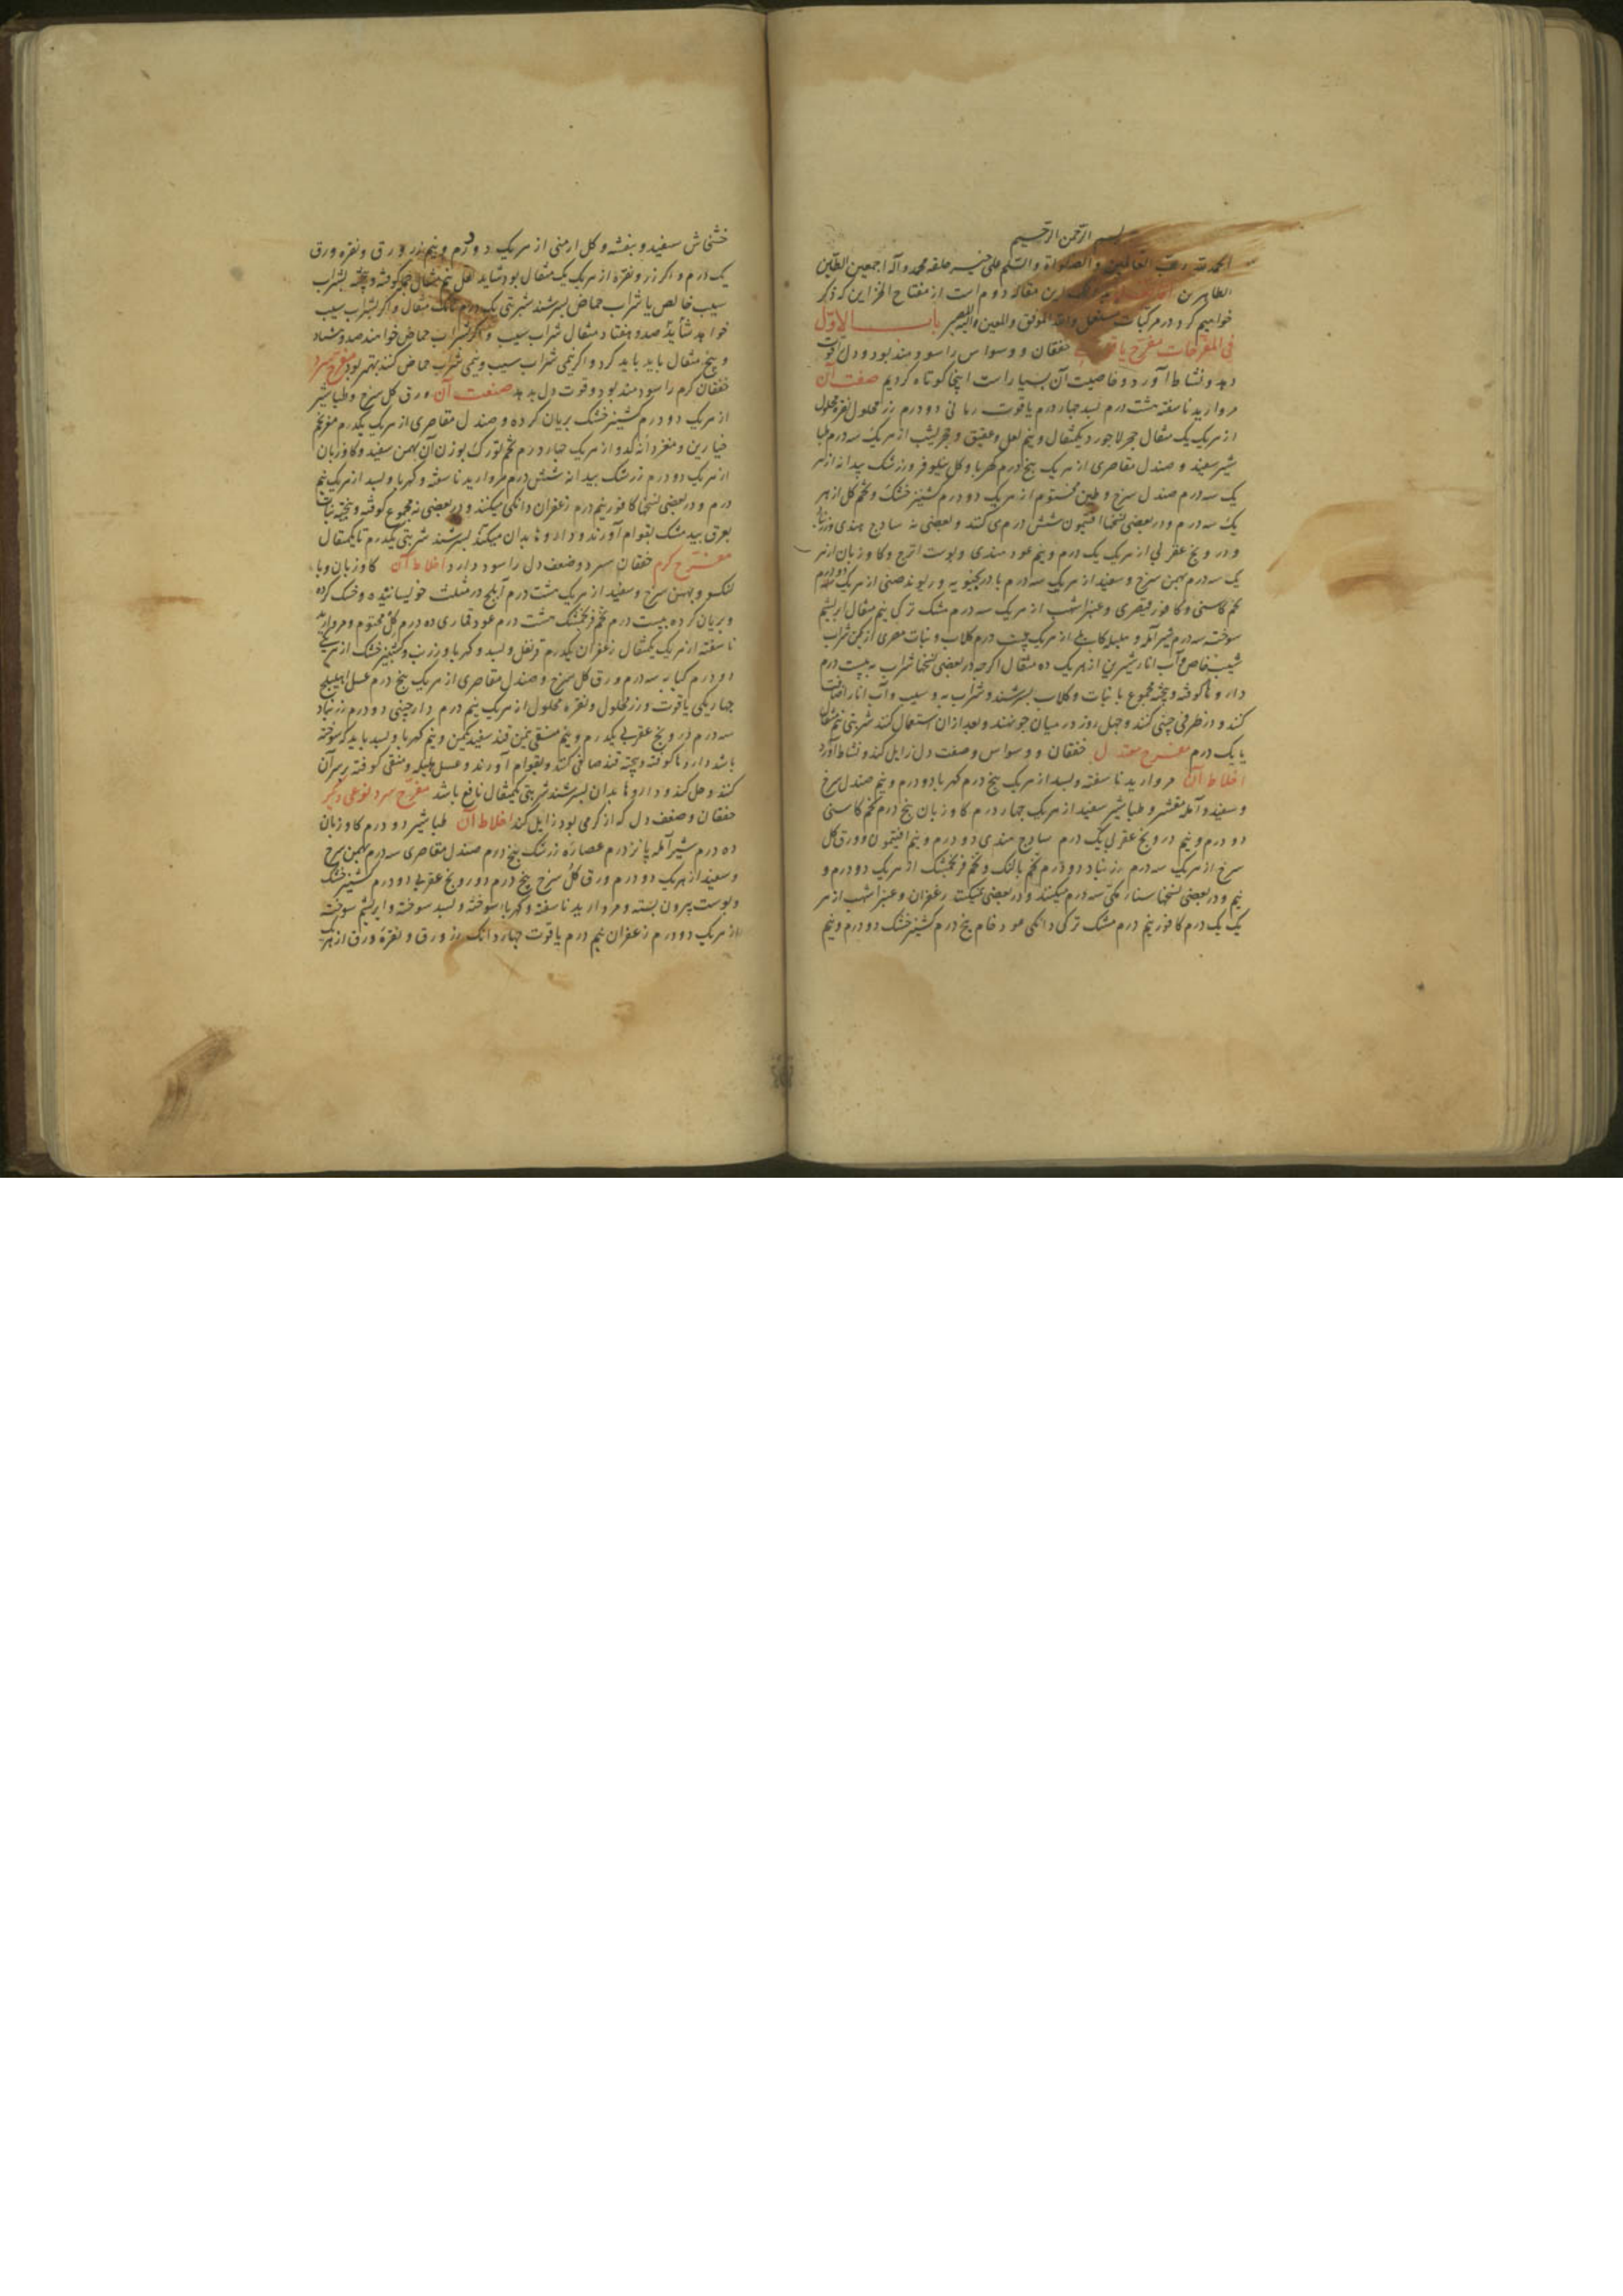 بسم الله الرحمن الرحیم
الحمد لله رب العالمین والصلواة والسلم علی خیر خلقه محمد وآله اجمعین الطیبین
الطاهرین این مقاله دوم است از مفتاح الخزاین که ذکر
خواهیم کرد در مرکبات مستعمل والله الموفق والمعین والیه المصیر باب الاول
فی المفرحات مفرح یاقوتی خفقان و وسواس را سودمند بود و دل قوت
دهد و نشاط آورد و خاصیت آن بسیار است اینجا کوتاه کردیم صفت آن
مروارید ناسفته هشت درم بسد چهار درم یاقوت رمانی دو درم زر محلول نقره محلول
از هریک یک مثقال حجر لاجورد یکمثقال و نیم لعل و عقیق و حجر یشب از هریک سه درم طبا
شیر سفید و صندل مقاصری از هریک پنج درم کهربا و کل نیلوفر و زرشک بیدانه از هر
یک سه درم صندل سرخ و طین مختوم از هریک دو درم کشنیز خشک و تخم کل از هر
یک سه درم و در بعضی نسخها افتیمون شش درم می کنند و بعضی نه ساذج هندی و زرنباد
و درونج عقربی از هریک یک درم و نیم عود هندی و پوست اترج و کاوزبان از هر
یک سه درم بهمن سرخ و سفید از هریک سه درم بادرنجبویه و ریوند صینی از هریک دو درم
تخم کاسنی و کافور قیصری و عنبر اشهب از هریک سه درم مشک ترکی نیم مثقال ابریشم
سوخته سه درم شیر آمله و هلیله کابلی از هریک درم کلاب و نبات مصری از یکمن شراب
سیب خاص و آب انار شیرین از هریک ده مثقال اکرچه در بعضی نسخها شراب به بیست درم
داروها کوفته و بیخته مجموع با نبات و کلاب بسرشند و شراب به و سیب و آب انار اضافت
کنند و در ظرفی چینی کنند و چهل روز در میان جو نهند و بعد ازان استعمال کنند شربتی نیم مثقال
یا یک درم مفرح معتدل خفقان و وسواس و ضعف دل زایل کند و نشاط آورد
اخلاط آن مروارید ناسفته و بسد از هریک پنج درم کهربا دو درم و نیم صندل سرخ
و سفید و آمله مقشر و طباشیر سفید از هریک چهار درم کاوزبان پنج درم تخم کاسنی
دو درم و نیم درونج عقربی یک درم ساذج هندی دو درم و نیم افتیمون و ورق کل
سرخ از هریک سه درم زرنباد دو درم تخم بالنک و تخم فرنجمشک از هریک دو درم و
نیم و در بعضی نسخها سناء مکی سه درم میکنند و در بعضی زعفران و عنبر اشهب از هر
یک یک درم کافور نیم درم مشک ترکی دانکی عود خام پنج درم کشنیز خشک دو درم و نیم
خشخاش سفید و بنفشه و کل ارمنی از هریک دو درم و نیم زر ورق و نقره ورق
یک درم و اکر زر و نقره از هریک یک مثقال بود شاید لعل نیم مثقال کوفته و بیخته بشراب
سیب خالص یا شراب حماض بسرشند شربتی یک درم تا یک مثقال و اکر بشراب سیب
خواهد شاید صد و هفتاد مثقال شراب سیب و اکر شراب حماض خواهند صد و هشتاد
و پنج مثقال باید باید کرد و اکر نیمی شراب سیب و نیمی شراب حماض کنند بهتر بود مفرح سرد
خفقان کرم را سودمند بود و قوت دل بدهد صنعت آن ورق کل سرخ و طباشیر
از هریک دو درم کشنیز خشک بریان کرده و صندل مقاصری از هریک یکدرم مغز تخم
خیارین و مغز دانه کدو از هریک چهار درم تخم تورک بوزن آن بهمن سفید و کاوزبان
از هریک دو درم زرشک بیدانه شش درم مروارید ناسفته و کهربا و بسد از هریک نیم
درم و در بعضی نسخها کافور نیم درم زعفران دانکی میکنند و در بعضی نه مجموع کوفته و بیخته نبات
بعرق بید مشک بقوام آورند و داروها بدان میکنند بسرشند شربتی یکدرم تا یکمثقال
مفرح کرم خفقان سرد و ضعف دل را سود دارد اخلاط آن کاوزبان وبا
لنکو و بهمن سرخ و سفید از هریک هشت درم آملج در مثلث خوسانیده و خشک کرده
و بریان کرده بیست درم تخم فرنجمشک هشت درم عود قماری ده درم کل مختوم و مروارید
ناسفته از هریک یکمثقال زعفران یکدرم قرنفل و بسد و کهربا و زرنب و کشنیز خشک از هریک
دو درم کبابه سه درم ورق کل سرخ و صندل مقاصری از هریک پنج درم عسل اهلیلج
چهار یکی یاقوت و زر محلول و نقره محلول از هریک نیم درم دارچینی دو درم زرنباد
سه درم درونج عقربی یکدرم و نیم منقی یمن قند سفید یکمن و نیم کهربا و بسد باید که سوخته
باشد داروها کوفته و بیخته قند صافی کنند و بقوام آورند و عسل هلیله و منقی کوفته بر سر آن
کنند و حل کنند و داروها بدان بسرشند شربتی یکمثقال نافع باشد مفرح سرد نوعی دیکر
خفقان و ضعف دل که از کرمی بود زایل کند اخلاط آن طباشیر دو درم کاوزبان
ده درم شیر آمله پانزدرم عصاره زرشک پنج درم صندل مقاصری سه درم بهمن سرخ
و سفید از هریک دو درم ورق کل سرخ پنج درم درونج عقربی دو درم کشنیز خشک
و پوست بیرون پسته و مروارید ناسفته و کهربا سوخته و بسد سوخته و ابریشم سوخته
از هریک دو درم زعفران نیم درم یاقوت چهار دانک زر ورق و نقره ورق از هریک